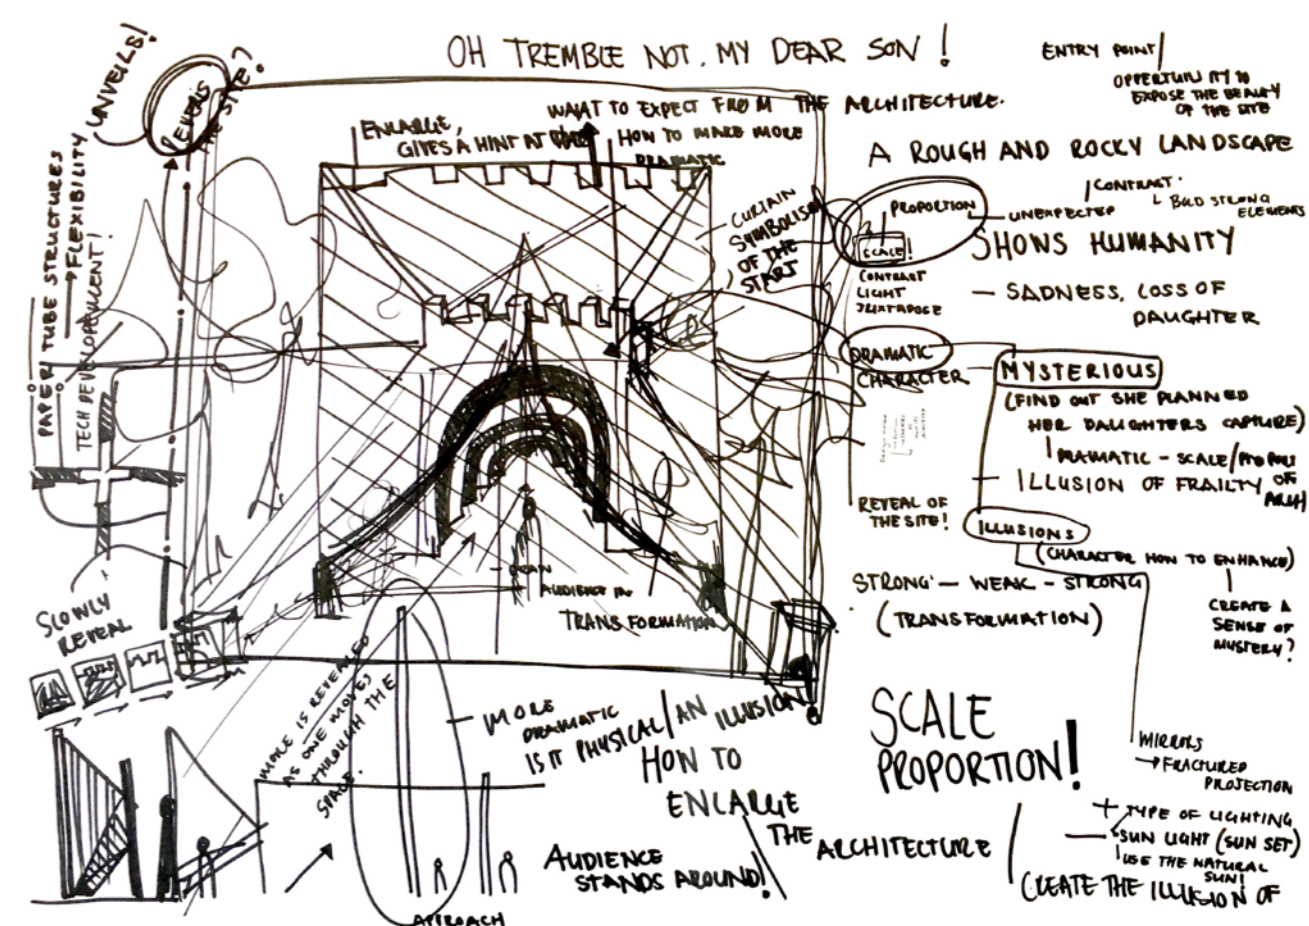 OH TREMBLE NOT, MY DEAR SON!
ENTRY POINT/
OPPERTUNITY TO
EXPOSE THE BEAUTY
OF THE SITE
UNVEILS!
REVEALS
THE SITE?
PAPER/TUBE STRUCTURES
→ FLEXIBILITY
TECH DEVELOPEMENT!
WHAT TO EXPECT FROM THE ARCHITECTURE.
ENLARGE,
GIVES A HINT AT
HOW TO MAKE MORE
DRAMATIC
A ROUGH AND ROCKY LANDSCAPE
CURTAIN
SYMBOLISM
OF THE
START
PROPORTION
UNEXPECTED
CONTRAST.
BOLD STRONG
ELEMENTS
SCALE!
CONTRAST
LIGHT
JUXTAPOSE
SHOWS HUMANITY
— SADNESS, LOSS OF
DAUGHTER
DRAMATIC
CHARACTER
MYSTERIOUS
(FIND OUT SHE PLANNED
HER DAUGHTERS CAPTURE)
DRAMATIC - SCALE/
— ILLUSION OF FRAILTY OF
ARCH
REVEAL OF
THE SITE!
ILLUSIONS
(CHARACTER HOW TO ENHANCE)
STRONG - WEAK - STRONG
(TRANSFORMATION)
CREATE A
SENSE OF
MYSTERY?
AUDIENCE IN
TRANSFORMATION
SLOWLY
REVEAL
MORE IS REVEALED
AS ONE MOVES
THROUGH THE
SPACE.
— MORE
DRAMATIC
IS IT PHYSICAL/AN ILLUSION
HOW TO
ENLARGE
THE
ARCHITECTURE
SCALE
PROPORTION!
MIRRORS
→ FRACTURED
PROJECTION
+ TYPE OF LIGHTING
SUN LIGHT (SUN SET)
USE THE NATURAL
SUN!
CREATE THE ILLUSION OF
AUDIENCE
STANDS AROUND!
APPROACH